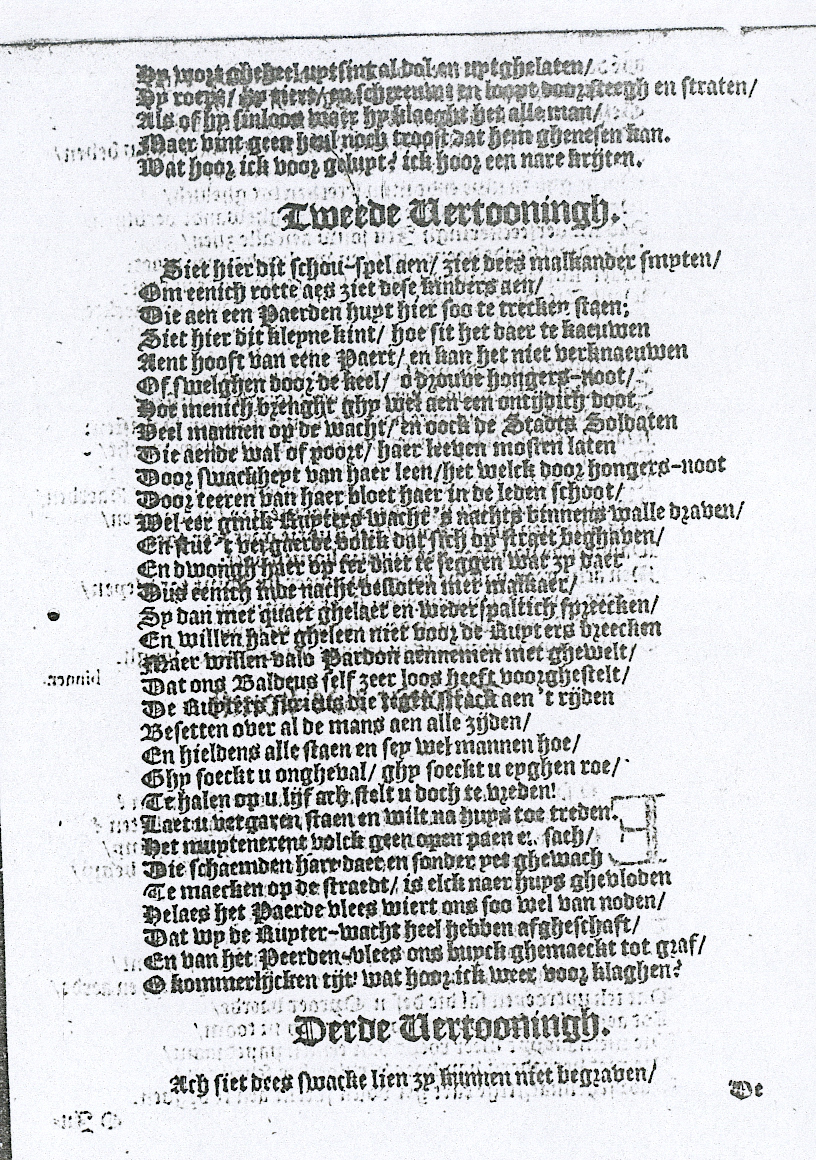 Hy wort gheheel uytsint al dol en uytghelaten/
Hy roept/ hy tiert/ en schreeuwt en loopt door steegh en straten/
Als of hy sinloos waer hy klaeght het alle man/
Maer vint geen heul noch troost dat hem ghenesen kan.
Wat hoor ick voor geluyt? ick hoor een nare krijten.
Tweede Vertooningh.
Siet hier dit schou-spel aen/ ziet dees malkander smyten/
Om eenich rotte aes ziet dese kinders aen/
Die aen een Paerden huyt hier soo te trecken staen;
Siet hier dit kleyne kint/ hoe sit het daer te kaeuwen
Aent hooft van eene Paert/ en kan het niet verknaeuwen
Of swelghen door de keel/ o drouve hongers-noot/
Hoe menich brenght ghy wel aen een ontijdich doot
Veel mannen op de wacht/ en oock de Stadts Soldaten
Die aende wal of poort/ haer leeven mosten laten
Door swackheyt van haer leen/ het welck door hongers-noot
Door teeren van haer bloet haer in de leden schoot/
Wel eer ginck Ruyters wacht 's nachts binnens walle draven/
En stut 't vergaerde volck dat sich op straet beghaven/
En dwongh haer op ter daer te seggen wat zy daer
Dus eenich inde nacht besloten met malkaer/
Sy dan met quaet ghelaet en wederspaltich spreecken/
En willen haer gheleen niet voor de Ruyters breecken
Maer willen dalo Pardon aennemen met ghewelt/
Dat ons Baldeus self zeer loos heeft voorghestelt/
De Ruyters die aen 't rijden
Besetten over al de mans aen alle zijden/
En hieldens alle staen en sey wel mannen hoe/
Ghy soeckt u ongheval/ ghy soeckt u eyghen roe/
Te halen op u lijf ach stelt u doch te vreden!
Laet u vergaren staen en wilt na huys toe treden.
Het muytenerent volck geen open paen e.. sach/
Die schaemden hare daet en sonder yet ghewach
Te maecken op de straedt/ is elck naer huys ghevloden
Helaes het Paerde vlees wiert ons soo wel van noden/
Dat wy de Ruyter-wacht heel hebben afgheschaft/
En van het Peerden-vlees ons buyck ghemaeckt tot graf/
O kommerlijcken tijt! wat hoor ick weer voor klaghen?
Derde Vertooningh.
Ach siet dees swacke lien zy kunnen niet begraven/
De